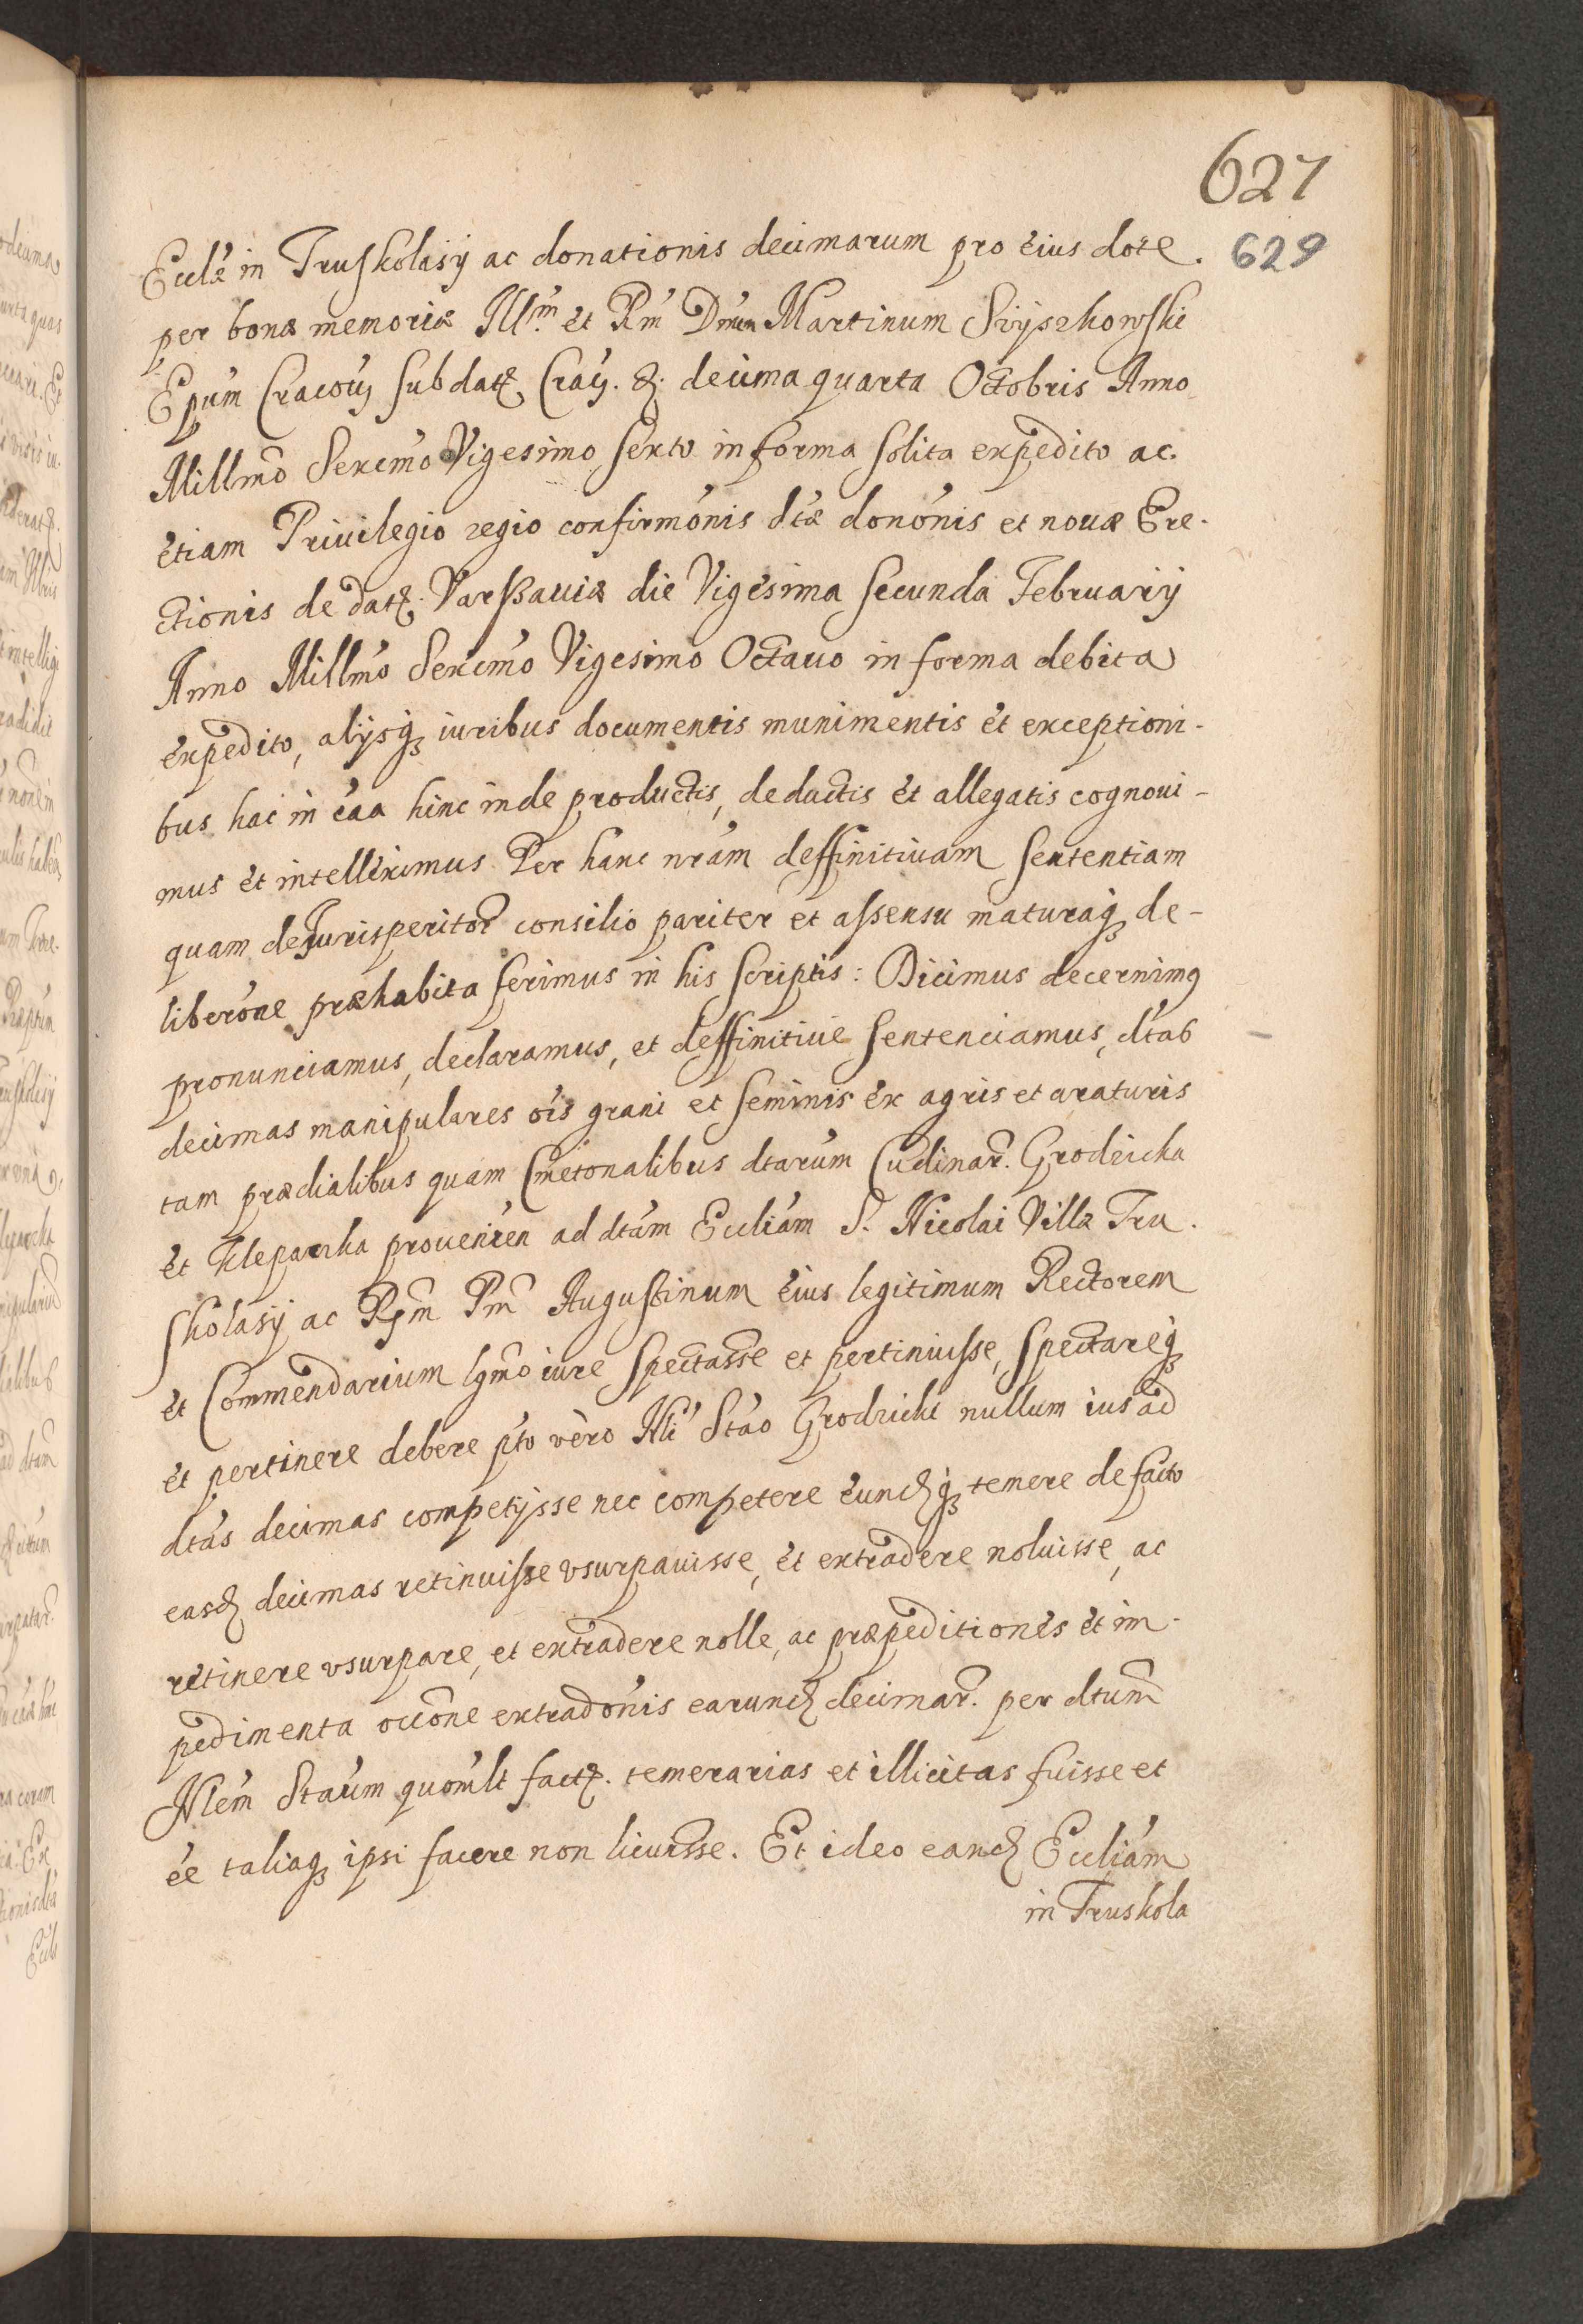 627
629
Eccle in Truskolasÿ ac donationis decimarum pro eius dote.
per bonæ memoriæ Illm. et Rm Dmum Martinum Szÿszkowski
Epum Cracouÿ sub datᵱ Crac. &. decima quarta Octobris Anno
Millmo Sexcmo Vigesimo sexto in forma solita expedito ac.
etiam Priuilegio regio confirmonis dtæ dononis et nouæ Ere-
ctionis de datꝫ. Varssauiæ die Vigesima secunda Februarij
Anno Millmo Sexcmo Vigesimo Octauo in forma debita
expedito, alijsqꝫ iuribus documentis munimentis et exceptioni-
bus hac in caa hinc inde productis, deductis et allegatis cognoui-
mus et intelleximus Per hanc nram deffinitiuam sententiam
quam de Jurisperitor consilio pariter et assensu maturaqꝫ de-
liberone præhabita ferimus in his scriptis: Dicimus decernimꝰ
pronunciamus, declaramus, et deffinitiue sentenciamus, dtas
decimas manipulares ois grani et seminis ex agris et araturis
tam prædialibus quam Cmetonalibus dtarum Cudinar. Grodzicka
et Kleparska prouenien ad dtam Eccliam S. Nicolai Villæ Tru-
skolasÿ ac Rsm Pm Augustinum eius legitimum Rectorem
et Commendarium lgmo iure spectasse et pertinuisse, spectareqꝫ
et pertinere debere pto vero Nli Stao Grodzicki nullum ius ad
dtas decimas competÿsse nec competere eundꝫqꝫ temere de facto
easdꝫ decimas retinuisse vsurpauisse, et extradere noluisse, ac
retinere vsurpare, et extradere nolle, ac præpeditiones et im-
pedimenta occone extradonis earundꝫ decimar. per dtum
Nlem Staum quomlt factꝫ. temerarias et illicitas fuisse et
ee taliaqꝫ ipsi facere non licuisse. Et ideo eandꝫ Eccliam
in Truskola